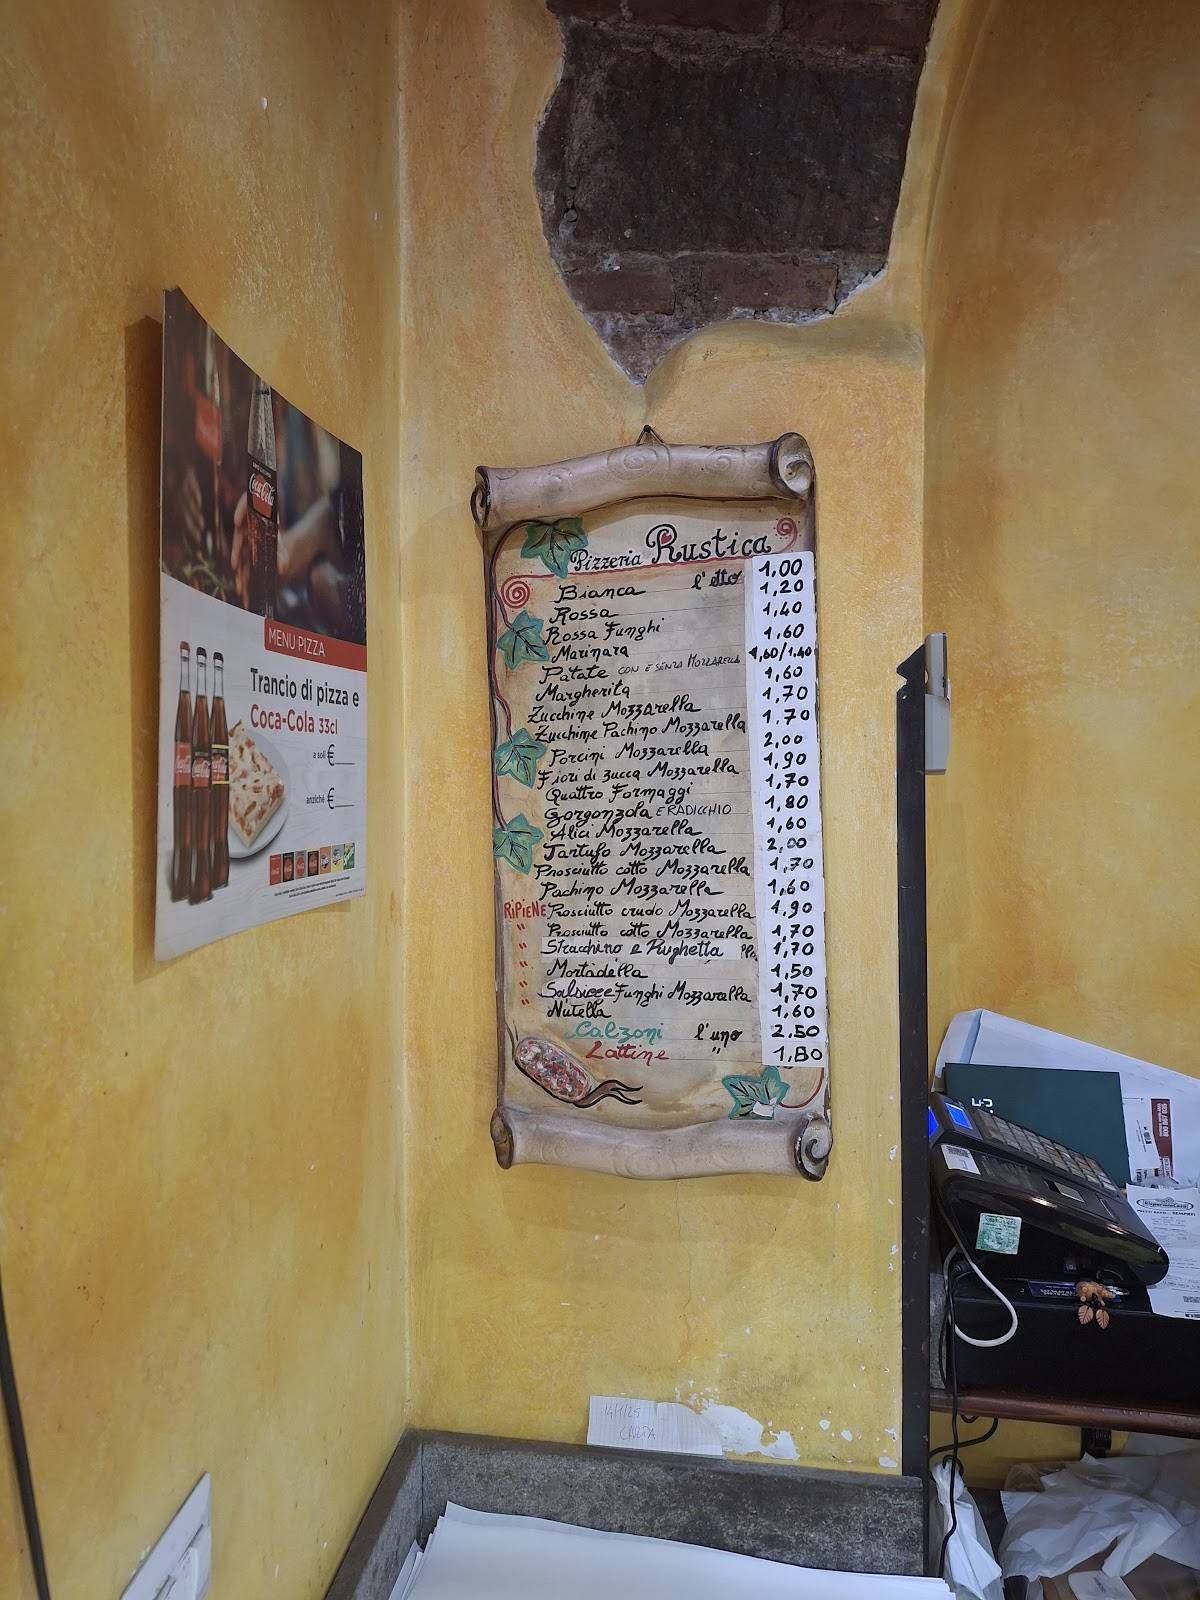 Coca-Cola
MENU PIZZA
Trancio di pizza e
Coca-Cola 33cl
a soli €
anziché €
Pizzeria Rustica
Bianca l'etto 1,00
Rossa 1,20
Rossa Funghi 1,40
Marinara 1,60
Patate CON E SENZA MOZZARELLA 1,60/1.40
Margherita 1,60
Zucchine Mozzarella 1,70
Zucchine Pachino Mozzarella 1.70
Porcini Mozzarella 2,00
Fiori di zucca Mozzarella 1,90
Quattro Formaggi 1,70
Gorgonzola E RADICCHIO 1,80
Alici Mozzarella 1,60
Tartufo Mozzarella 2,00
Prosciutto cotto Mozzarella 1,70
Pachino Mozzarella 1,60
RiPiENE Prosciutto crudo Mozzarella 1,90
" Prosciutto cotto Mozzarella 1,70
" Stracchino e Rughetta 1,70
" Mortadella 1,50
" Salsicce Funghi Mozzarella 1,70
" Nutella 1,60
Calzoni l'uno 2.50
Lattine " 1,80
CARTA